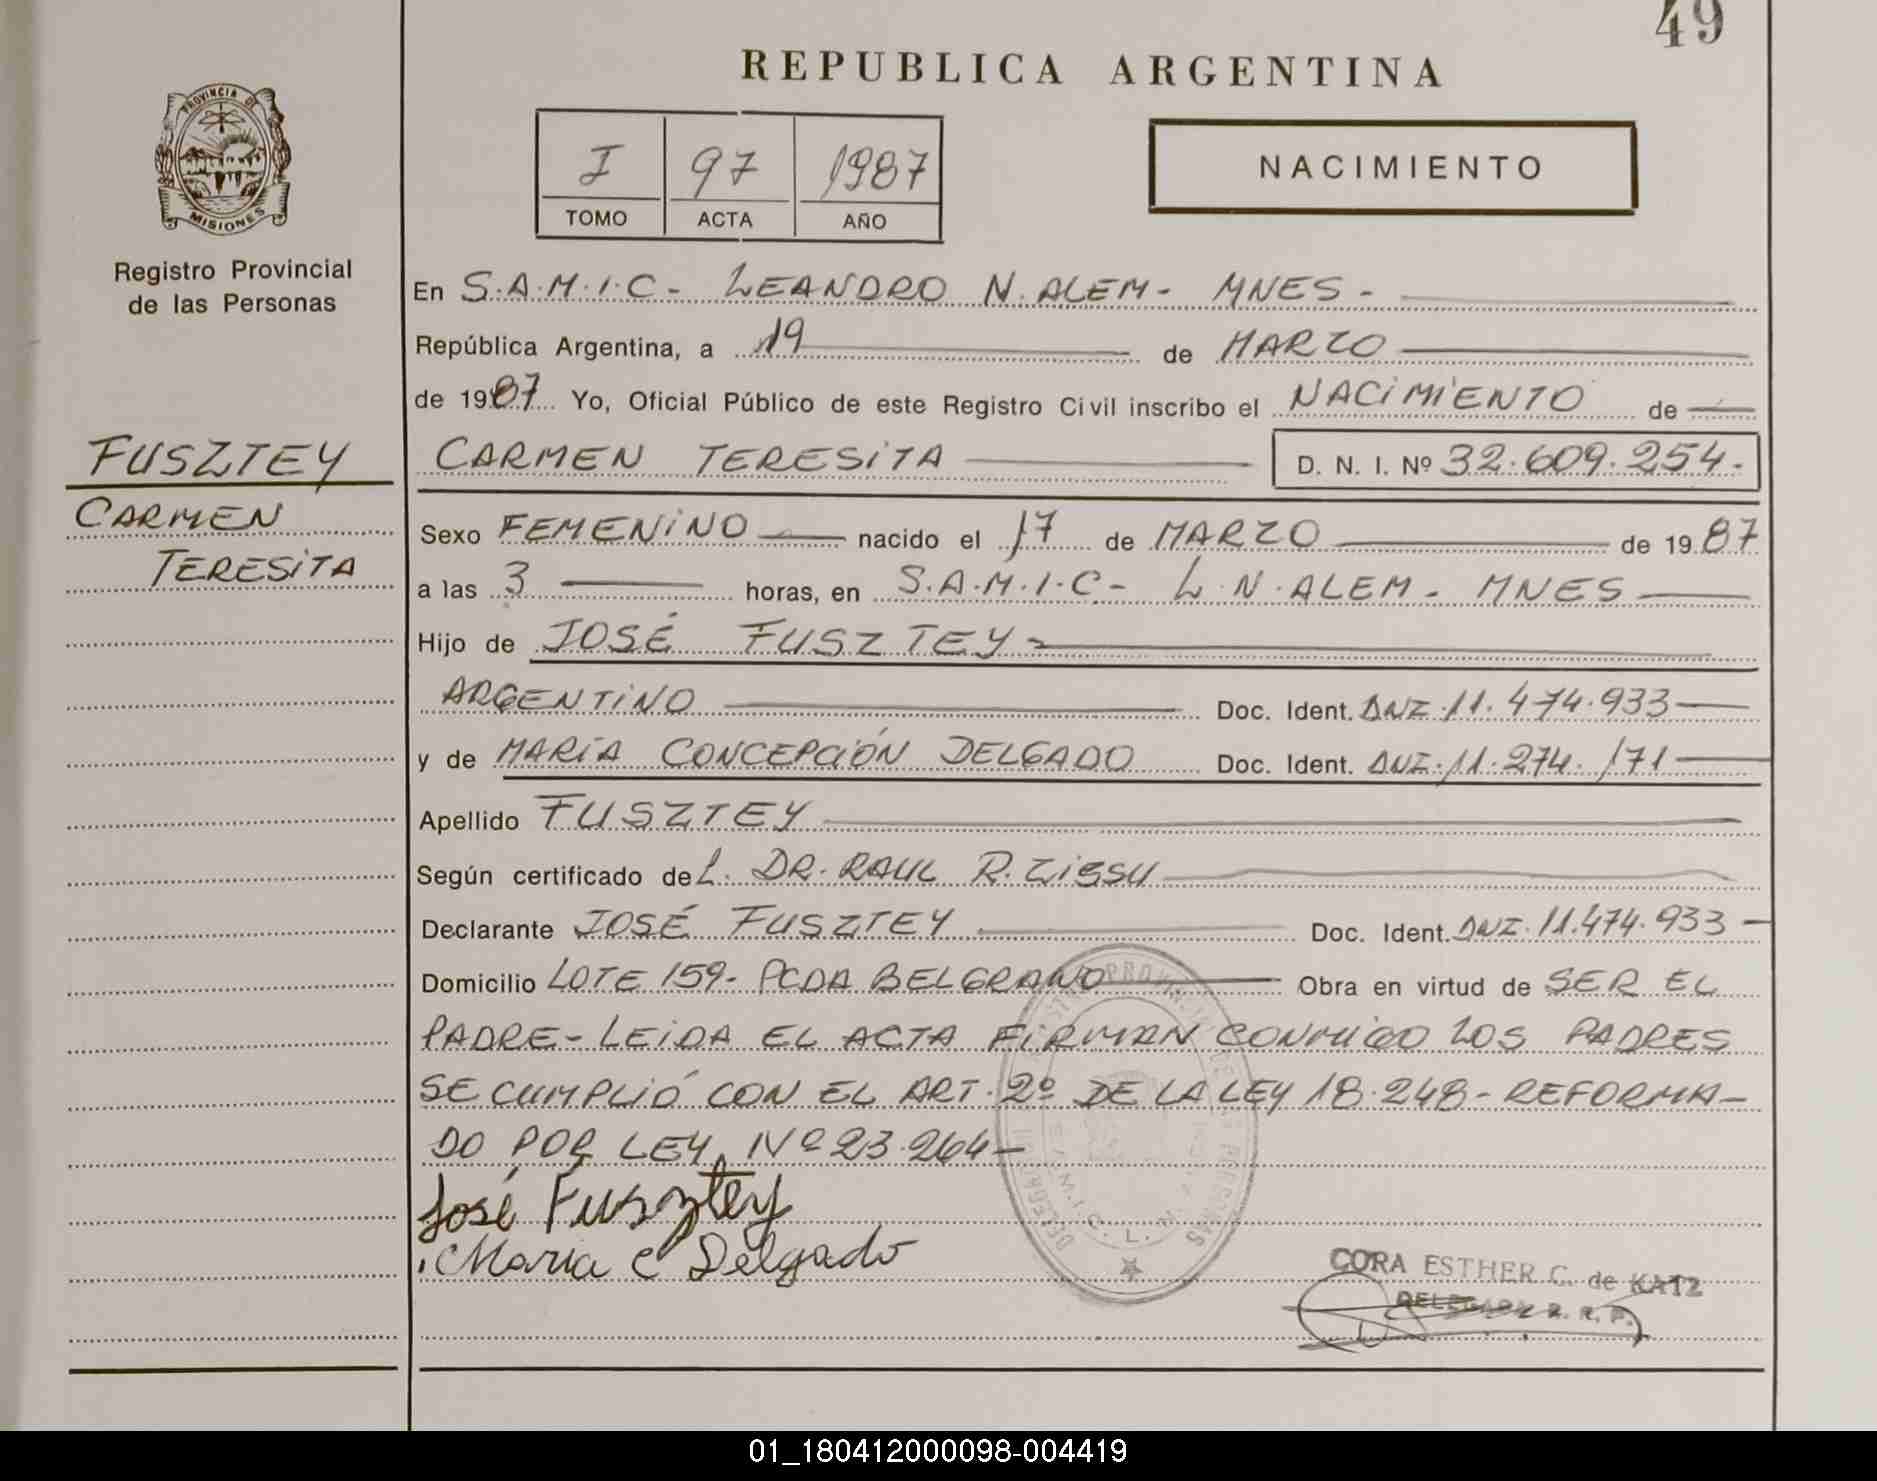 49
REPUBLICA ARGENTINA
PROVINCIA DE
MISIONES
Registro Provincial
de las Personas
I 97 1987
TOMO ACTA AÑO
NACIMIENTO
En S.A.M.I.C- LEANDRO N. ALEM- MNES-
República Argentina, a 19 de MARZO
de 1987 Yo, Oficial Público de este Registro Civil inscribo el NACIMIENTO de
FUSZTEY
CARMEN
TERESITA
CARMEN TERESITA D. N. I. Nº 32.609.254-
Sexo FEMENINO nacido el 17 de MARZO de 1987
a las 3 horas, en S.A.M.I.C- L.N.ALEM- MNES
Hijo de JOSÉ FUSZTEY-
ARGENTINO Doc. Ident. DNI.11.474.933
y de MARÍA CONCEPCIÓN DELGADO Doc. Ident. DNI.11.274.171
Apellido FUSZTEY
Según certificado del. DR. RAUL R.
Declarante JOSÉ FUSZTEY Doc. Ident. DNI.11.474.933-
Domicilio LOTE 159- PCDA BELGRANO Obra en virtud de SER EL
PADRE- LEIDA EL ACTA FIRMAN CONMIGO LOS PADRES
SE CUMPLIÓ CON EL ART. 2º DE LA LEY 18.248- REFORMA-
DO POR LEY Nº 23.264-
José Fusztey
Maria C Delgado
CORA ESTHER C. de KATZ
DELEGADA R. R. P.
01_180412000098-004419